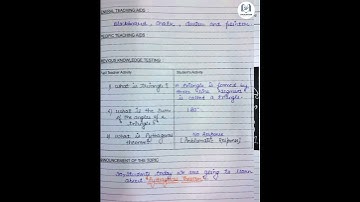 GENERAL TEACHING AIDS
Blackboard, chalk, duster and pointer
SPECIFIC TEACHING AIDS
PREVIOUS KNOWLEDGE TESTING
Pupil Teacher Activity
Student's Activity
What is triangle?
A triangle is formed by
three line segment
is called a triangle.
What is the sum
of the angles of a
triangle?
180°
What is Pythagoras
theorem?
no response
(Problematic Response)
ANNOUNCEMENT OF THE TOPIC
So, students today we are going to learn
about "Pythagoras Theorem".